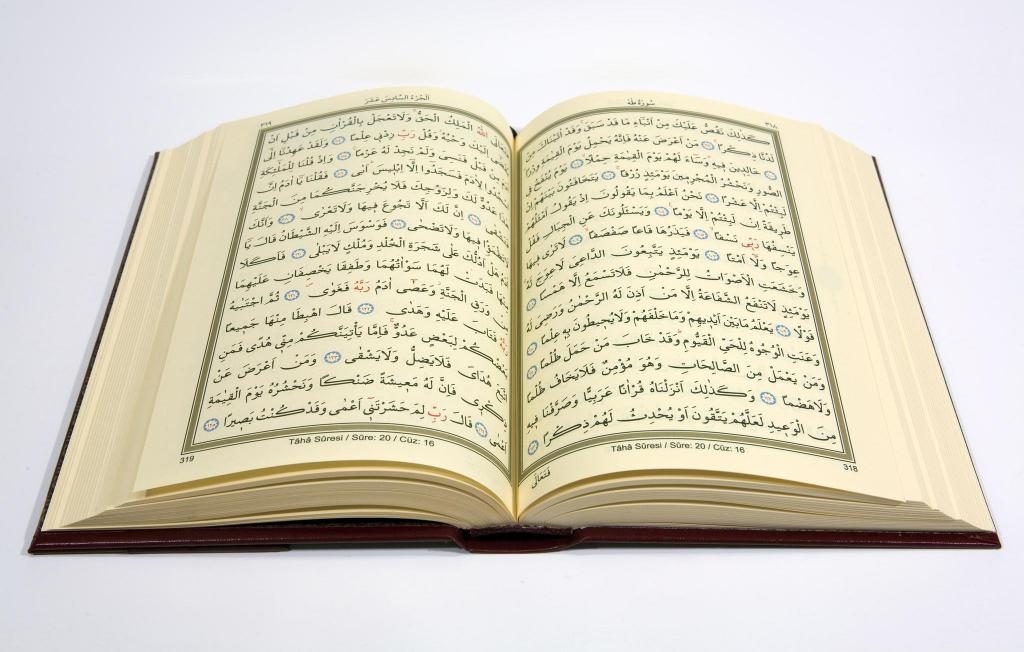 سُورَةُ طٰهٰ
٣١٨
كَذٰلِكَ نَقُصُّ عَلَيْكَ مِنْ اَنْبَٓاءِ مَا قَدْ سَبَقَۚ وَقَدْ اٰتَيْنَاكَ مِنْ
لَدُنَّا ذِكْرًاۚ ﴿٩٩﴾ مَنْ اَعْرَضَ عَنْهُ فَاِنَّهُ يَحْمِلُ يَوْمَ الْقِيٰمَةِ وِزْرًاۙ
﴿١٠٠﴾ خَالِدِينَ فِيهِ وَسَٓاءَ لَهُمْ يَوْمَ الْقِيٰمَةِ حِمْلًاۙ ﴿١٠١﴾ يَوْمَ يُنْفَخُ فِي
الصُّورِ وَنَحْشُرُ الْمُجْرِمِينَ يَوْمَئِذٍ زُرْقًاۚ ﴿١٠٢﴾ يَتَخَافَتُونَ بَيْنَهُمْ اِنْ
لَبِثْتُمْ اِلَّا عَشْرًا ﴿١٠٣﴾ نَحْنُ اَعْلَمُ بِمَا يَقُولُونَ اِذْ يَقُولُ اَمْثَلُهُمْ
طَرِيقَةً اِنْ لَبِثْتُمْ اِلَّا يَوْمًا۟ ﴿١٠٤﴾ وَيَسْـَٔلُونَكَ عَنِ الْجِبَالِ فَقُلْ
يَنْسِفُهَا رَبِّي نَسْفًاۙ ﴿١٠٥﴾ فَيَذَرُهَا قَاعًا صَفْصَفًاۙ ﴿١٠٦﴾ لَا تَرٰى فِيهَا
عِوَجًا وَلَٓا اَمْتًاۜ ﴿١٠٧﴾ يَوْمَئِذٍ يَتَّبِعُونَ الدَّاعِيَ لَا عِوَجَ لَهُۚ
وَخَشَعَتِ الْاَصْوَاتُ لِلرَّحْمٰنِ فَلَا تَسْمَعُ اِلَّا هَمْسًا ﴿١٠٨﴾
يَوْمَئِذٍ لَا تَنْفَعُ الشَّفَاعَةُ اِلَّا مَنْ اَذِنَ لَهُ الرَّحْمٰنُ وَرَضِيَ لَهُ
قَوْلًا ﴿١٠٩﴾ يَعْلَمُ مَا بَيْنَ اَيْدِيهِمْ وَمَا خَلْفَهُمْ وَلَا يُحِيطُونَ بِهِ عِلْمًا ﴿١١٠﴾
وَعَنَتِ الْوُجُوهُ لِلْحَيِّ الْقَيُّومِۜ وَقَدْ خَابَ مَنْ حَمَلَ ظُلْمًا ﴿١١١﴾
وَمَنْ يَعْمَلْ مِنَ الصَّالِحَاتِ وَهُوَ مُؤْمِنٌ فَلَا يَخَافُ ظُلْمًا
وَلَا هَضْمًا ﴿١١٢﴾ وَكَذٰلِكَ اَنْزَلْنَاهُ قُرْاٰنًا عَرَبِيًّا وَصَرَّفْنَا فِيهِ
مِنَ الْوَعِيدِ لَعَلَّهُمْ يَتَّقُونَ اَوْ يُحْدِثُ لَهُمْ ذِكْرًا ﴿١١٣﴾
Tâhâ Sûresi / Sûre: 20 / Cüz: 16
318
فَتَعَالَى
اَلْجُزْءُ السَّادِسَ عَشَرَ
٣١٩
اللّٰهُ الْمَلِكُ الْحَقُّۚ وَلَا تَعْجَلْ بِالْقُرْاٰنِ مِنْ قَبْلِ اَنْ
اِلَيْكَ وَحْيُهُۘ وَقُلْ رَبِّ زِدْنِي عِلْمًا ﴿١١٤﴾ وَلَقَدْ عَهِدْنَٓا اِلٰٓى
مِنْ قَبْلُ فَنَسِيَ وَلَمْ نَجِدْ لَهُ عَزْمًا۟ ﴿١١٥﴾ وَاِذْ قُلْنَا لِلْمَلٰٓئِكَةِ
اسْجُدُوا لِاٰدَمَ فَسَجَدُٓوا اِلَّٓا اِبْلِيسَۜ اَبٰى ﴿١١٦﴾ فَقُلْنَا يَٓا اٰدَمُ اِنَّ
هٰذَا عَدُوٌّ لَكَ وَلِزَوْجِكَ فَلَا يُخْرِجَنَّكُمَا مِنَ الْجَنَّةِ
فَتَشْقٰى ﴿١١٧﴾ اِنَّ لَكَ اَلَّا تَجُوعَ فِيهَا وَلَا تَعْرٰىۙ ﴿١١٨﴾ وَاَنَّكَ
لَا تَظْمَؤُ۬ا فِيهَا وَلَا تَضْحٰى ﴿١١٩﴾ فَوَسْوَسَ اِلَيْهِ الشَّيْطَانُ قَالَ يَٓا
اٰدَمُ هَلْ اَدُلُّكَ عَلٰى شَجَرَةِ الْخُلْدِ وَمُلْكٍ لَا يَبْلٰى ﴿١٢٠﴾ فَاَكَلَا
مِنْهَا فَبَدَتْ لَهُمَا سَوْاٰتُهُمَا وَطَفِقَا يَخْصِفَانِ عَلَيْهِمَا
مِنْ وَرَقِ الْجَنَّةِۘ وَعَصٰٓى اٰدَمُ رَبَّهُ فَغَوٰىۖ ﴿١٢١﴾ ثُمَّ اجْتَبٰيهُ
رَبُّهُ فَتَابَ عَلَيْهِ وَهَدٰى ﴿١٢٢﴾ قَالَ اهْبِطَا مِنْهَا جَمِيعًا
بَعْضُكُمْ لِبَعْضٍ عَدُوٌّۚ فَاِمَّا يَأْتِيَنَّكُمْ مِنِّي هُدًى فَمَنِ
اتَّبَعَ هُدَايَ فَلَا يَضِلُّ وَلَا يَشْقٰى ﴿١٢٣﴾ وَمَنْ اَعْرَضَ عَنْ
ذِكْرِي فَاِنَّ لَهُ مَعِيشَةً ضَنْكًا وَنَحْشُرُهُ يَوْمَ الْقِيٰمَةِ
اَعْمٰى ﴿١٢٤﴾ قَالَ رَبِّ لِمَ حَشَرْتَنِٓي اَعْمٰى وَقَدْ كُنْتُ بَصِيرًا ﴿١٢٥﴾
Tâhâ Sûresi / Sûre: 20 / Cüz: 16
319